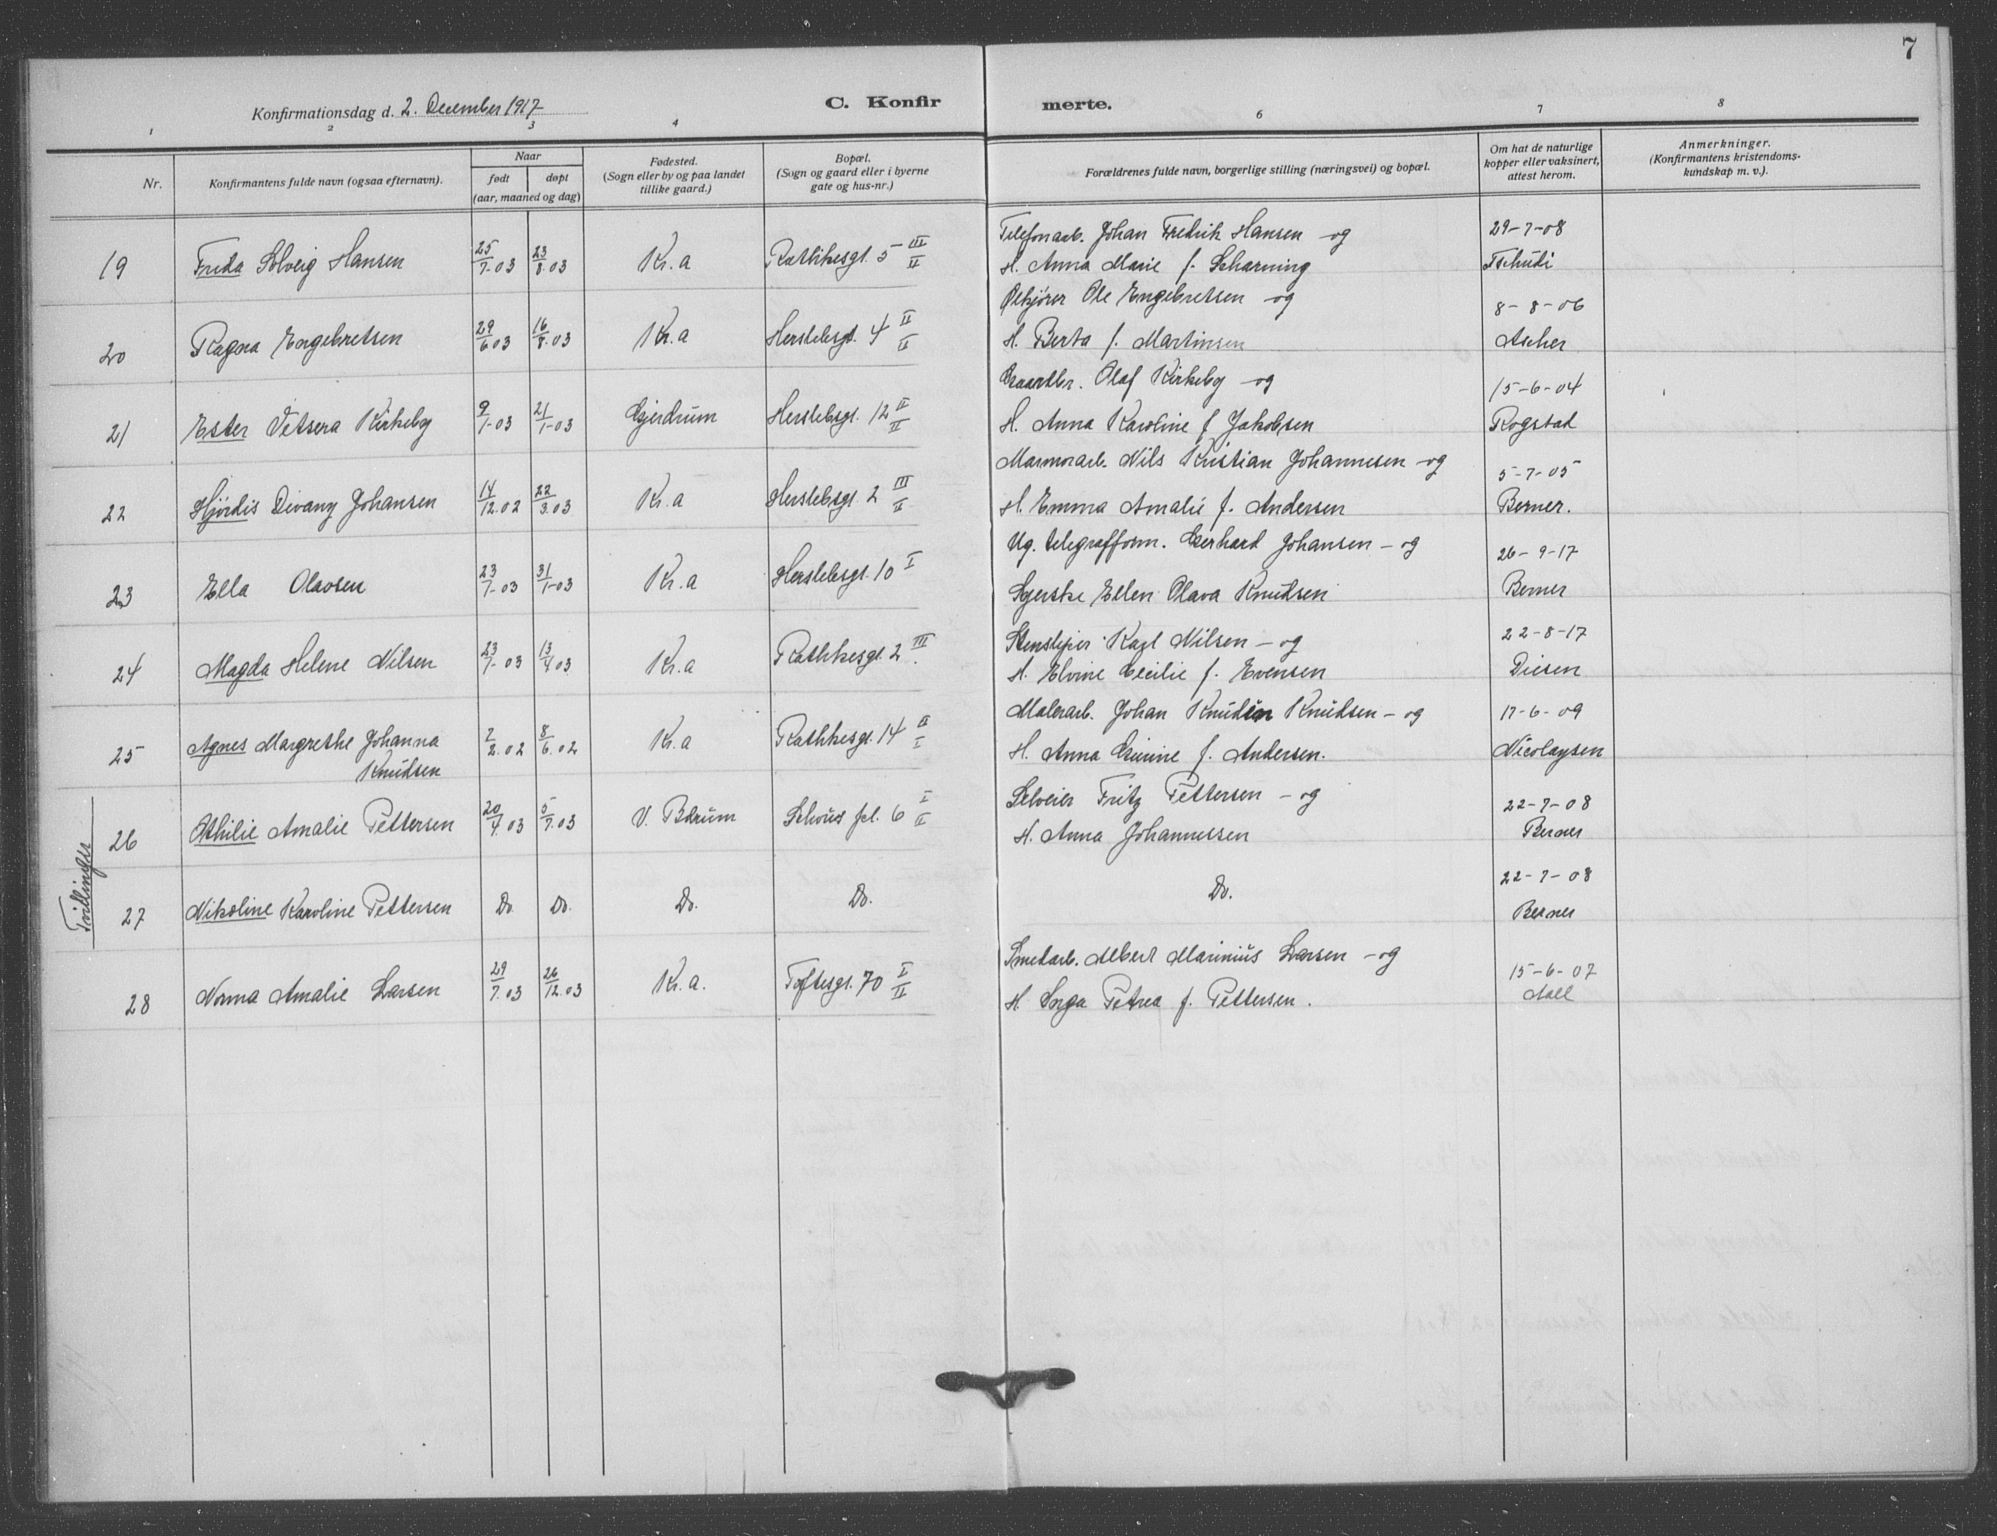 7
Konfirmationsdag d. 2. December 1917
C. Konfir merte.
1 2 3 4 6 7 8
Nr.
Konfirmantens fulde navn (ogsaa efternavn).
Naar
født døpt
(aar, maaned og dag)
Fødested.
(Sogn eller by og paa landet
tillike gaard.)
Bopæl.
(Sogn og gaard eller i byerne
gate og hus-nr.)
Forældrenes fulde navn, borgerlige stilling (næringsvei) og bopæl.
Om hat de naturlige
kopper eller vaksinert,
attest herom.
Anmerkninger.
(Konfirmantens kristendoms-
kundskap m. v.).
19 Frida Solveig Hansen 25/7.03 23/8.03 Kr.a Rathkesgt. 5 III/II
Telefonarb. Johan Fredrik Hansen - og 29-7-08
H. Anna Marie f. Scharning Tschudi
20 Ragna Engebretsen 29/6 03 16/8.03 Kr.a Herslebsgt. 4 II/II
Ølkjører Ole Engebretsen - og 8-8-06
H. Berta f. Martinsen Ascher
21 Ester Vetsera Kirkeby 9/1-03 21/1-03 Gjerdrum Herslebsgt. 12 II/II
Gaardbr. Olaf Kirkeby - og 15-6-04
H. Anna Karoline f Jakobsen Rogstad
22 Hjördis Divany Johansen 14/12.02 22/3.03 Kr.a Herslebsgt 2 III/II
Marmorarb. Nils Kristian Johannesen - og 5-7-05
H. Emma Amalie f. Andersen Berner.
23 Ella Olavsen 23/7-03 31/1-03 Kr.a Herslebsgt. 10 I
Ug. telegrafform. Gerhard Johansen - og 26-9-17
Syerske Ellen Olava Knudsen Berner
24 Magda Helene Nilsen 23/7-03 13/4.03 Kr.a Rathkesgt. 2 III
Stensliper Karl Nilsen - og 22-8-17
H. Elvine Cecilie f. Evensen Diesen
25 Agnes Margrethe Johanna 2/2.02 8/6.02 Kr.a Rathkesgt. 14 II/I
Knudsen
Malerarb. Johan Knudin Knudsen - og 17-6-09
H. Anna Gurine f. Andersen. Nicolaysen
Tvillinger
26 Othilie Amalie Pettersen 20/4.03 5/7.03 V. Bærum Schous pl. 6 I/II
Selveier Fritz Pettersen - og 22-7-08
H. Anna Johannessen Berner
27 Nikoline Karoline Pettersen Do Do. Do. Do.
Do. 22-7-08
Berner
28 Norma Amalie Larsen 29/7.03 26/12.03 Kr.a. Toftesgt. 70 I/II
Smedarb. Albert Marinius Larsen - og 15-6-07
H. Inga Petrea f. Pettersen. Aall